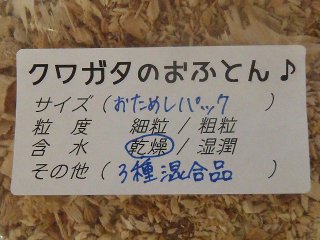 クワガタのおふとん♪
サイズ（おためしパック）
粒度 細粒 / 粗粒
含水 乾燥 / 湿潤
その他（3種混合品）